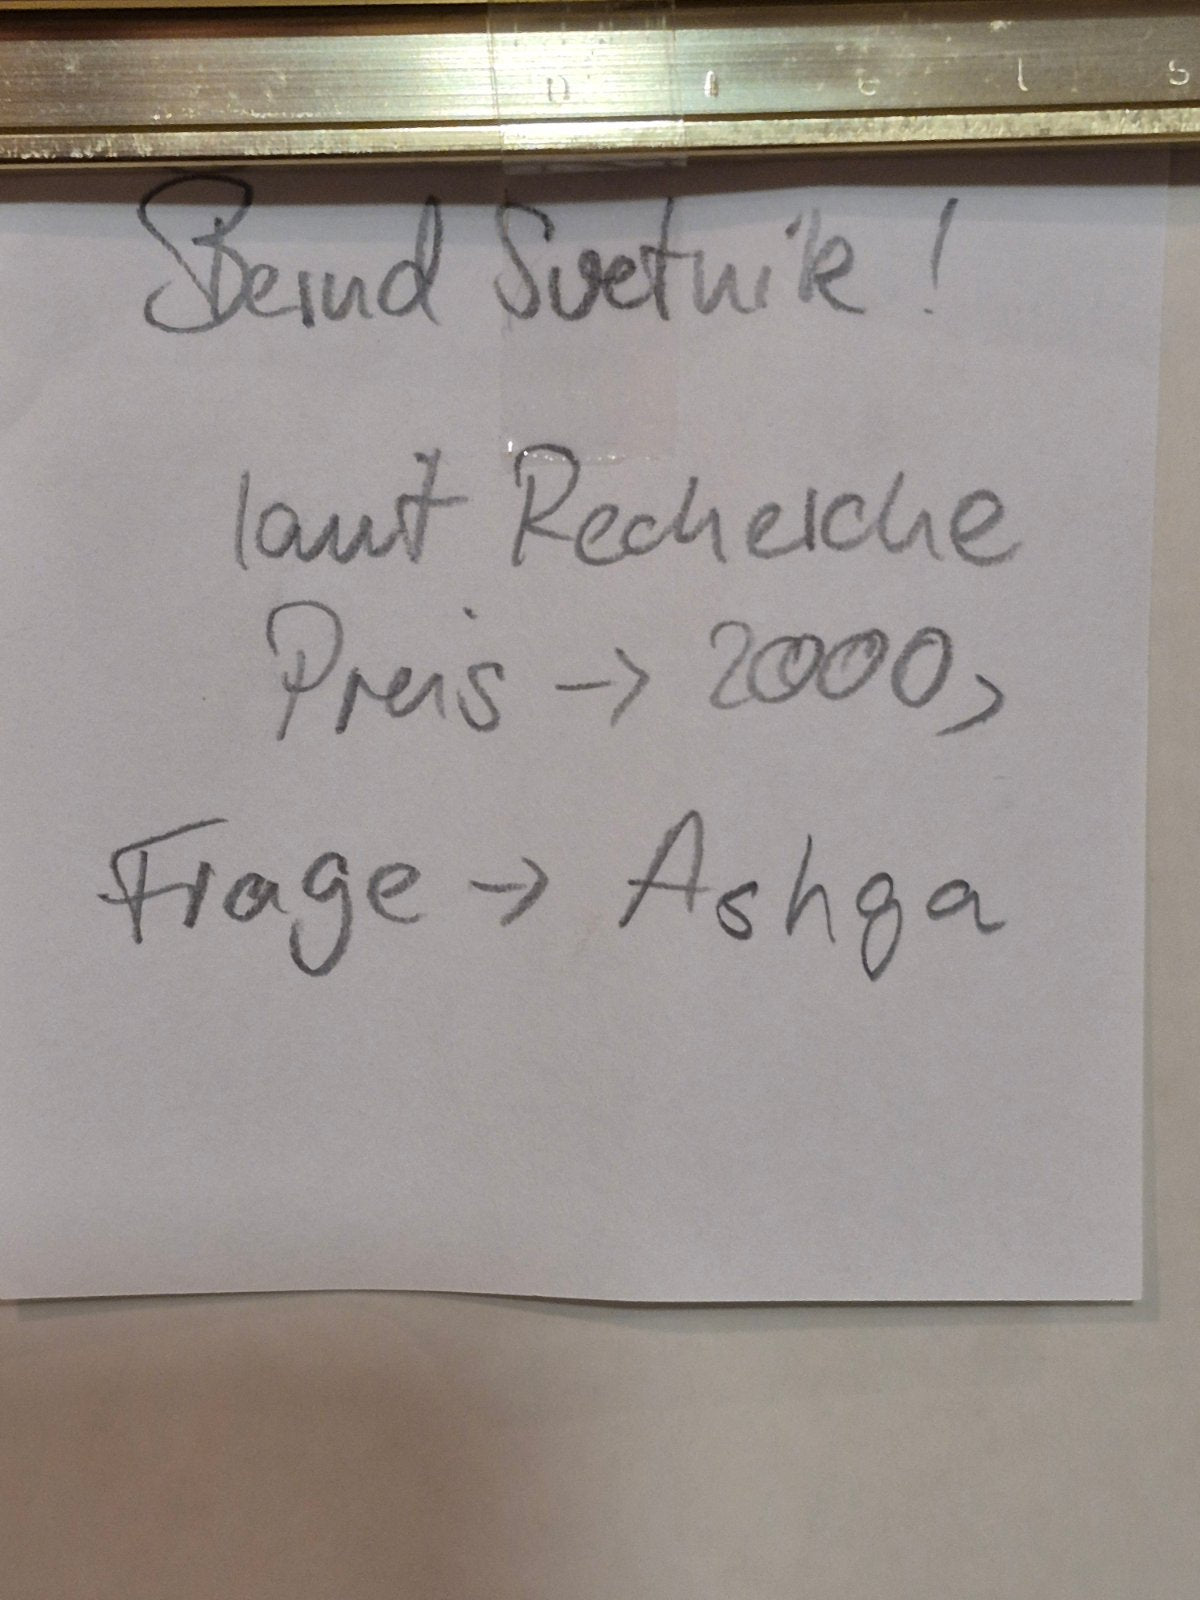 Bernd Svetnik!
laut Recherche
Preis → 2000,
Frage → Ashga